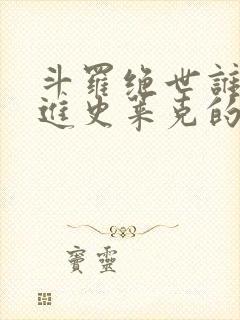 斗羅絕世誰
進史萊克的
寶靈